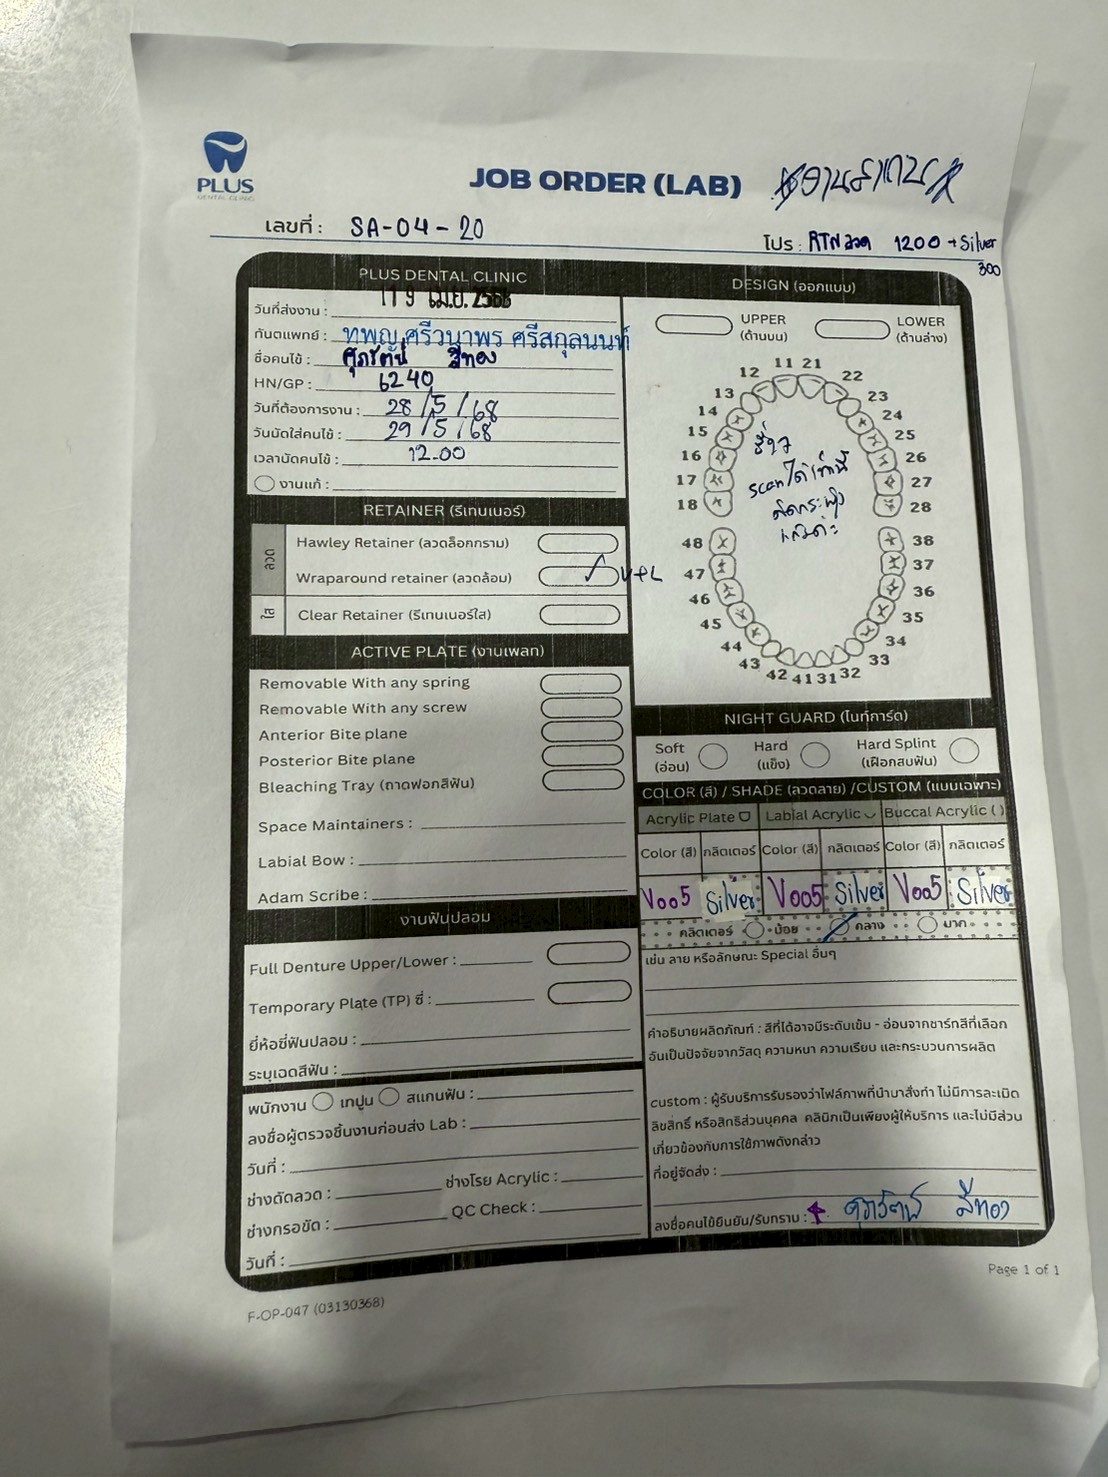 PLUS
DENTAL CLINIC
JOB ORDER (LAB)
เลขที่ : SA-04-20
โปร : RTN ลวด 1200 + Silver
300
PLUS DENTAL CLINIC
วันที่ส่งงาน : 19 เม.ย. 2568
ทันตแพทย์ : ทพญ.ศรีวนาพร ศรีสกุลนนท์
ชื่อคนไข้ : ศุภรัตน์ สีทอง
HN/GP : 6240
วันที่ต้องการงาน : 28/5/68
วันนัดใส่คนไข้ : 29/5/68
เวลานัดคนไข้ : 12.00
งานแก้ :
RETAINER (รีเทนเนอร์)
ลวด
Hawley Retainer (ลวดล็อกกราม)
Wraparound retainer (ลวดล้อม) U+L
ใส
Clear Retainer (รีเทนเนอร์ใส)
ACTIVE PLATE (งานเพลท)
Removable With any spring
Removable With any screw
Anterior Bite plane
Posterior Bite plane
Bleaching Tray (ถาดฟอกสีฟัน)
Space Maintainers :
Labial Bow :
Adam Scribe :
งานฟันปลอม
Full Denture Upper/Lower :
Temporary Plate (TP) ซี่ :
ยี่ห้อซี่ฟันปลอม :
ระบุเฉดสีฟัน :
พนักงาน เทปูน สแกนฟัน :
ลงชื่อผู้ตรวจชิ้นงานก่อนส่ง Lab :
วันที่ :
ช่างดัดลวด : ช่างโรย Acrylic :
ช่างกรอขัด : QC Check :
วันที่ :
DESIGN (ออกแบบ)
UPPER
(ด้านบน)
LOWER
(ด้านล่าง)
11 21
12 22
13 23
14 24
15 25
16 26
17 27
18 28
scan ได้เท่านี้
48 38
47 37
46 36
45 35
44 34
43 33
42 41 31 32
NIGHT GUARD (ไนท์การ์ด)
Soft
(อ่อน)
Hard
(แข็ง)
Hard Splint
(เฝือกสบฟัน)
COLOR (สี) / SHADE (ลวดลาย) /CUSTOM (แบบเฉพาะ)
Acrylic Plate Labial Acrylic Buccal Acrylic ( )
Color (สี) กลิตเตอร์ Color (สี) กลิตเตอร์ Color (สี) กลิตเตอร์
V005 Silver V005 Silver V005 Silver
กลิตเตอร์ น้อย กลาง มาก
เช่น ลาย หรือลักษณะ Special อื่นๆ
คำอธิบายผลิตภัณฑ์ : สีที่ได้อาจมีระดับเข้ม - อ่อนจากชาร์ทสีที่เลือก
อันเป็นปัจจัยจากวัสดุ ความหนา ความเรียบ และกระบวนการผลิต
custom : ผู้รับบริการรับรองว่าไฟล์ภาพที่นำมาสั่งทำ ไม่มีการละเมิด
ลิขสิทธิ์ หรือสิทธิส่วนบุคคล คลินิกเป็นเพียงผู้ให้บริการ และไม่มีส่วน
เกี่ยวข้องกับการใช้ภาพดังกล่าว
ที่อยู่จัดส่ง :
ลงชื่อคนไข้ยืนยัน/รับทราบ : ศุภรัตน์ สีทอง
Page 1 of 1
F-OP-047 (03130368)